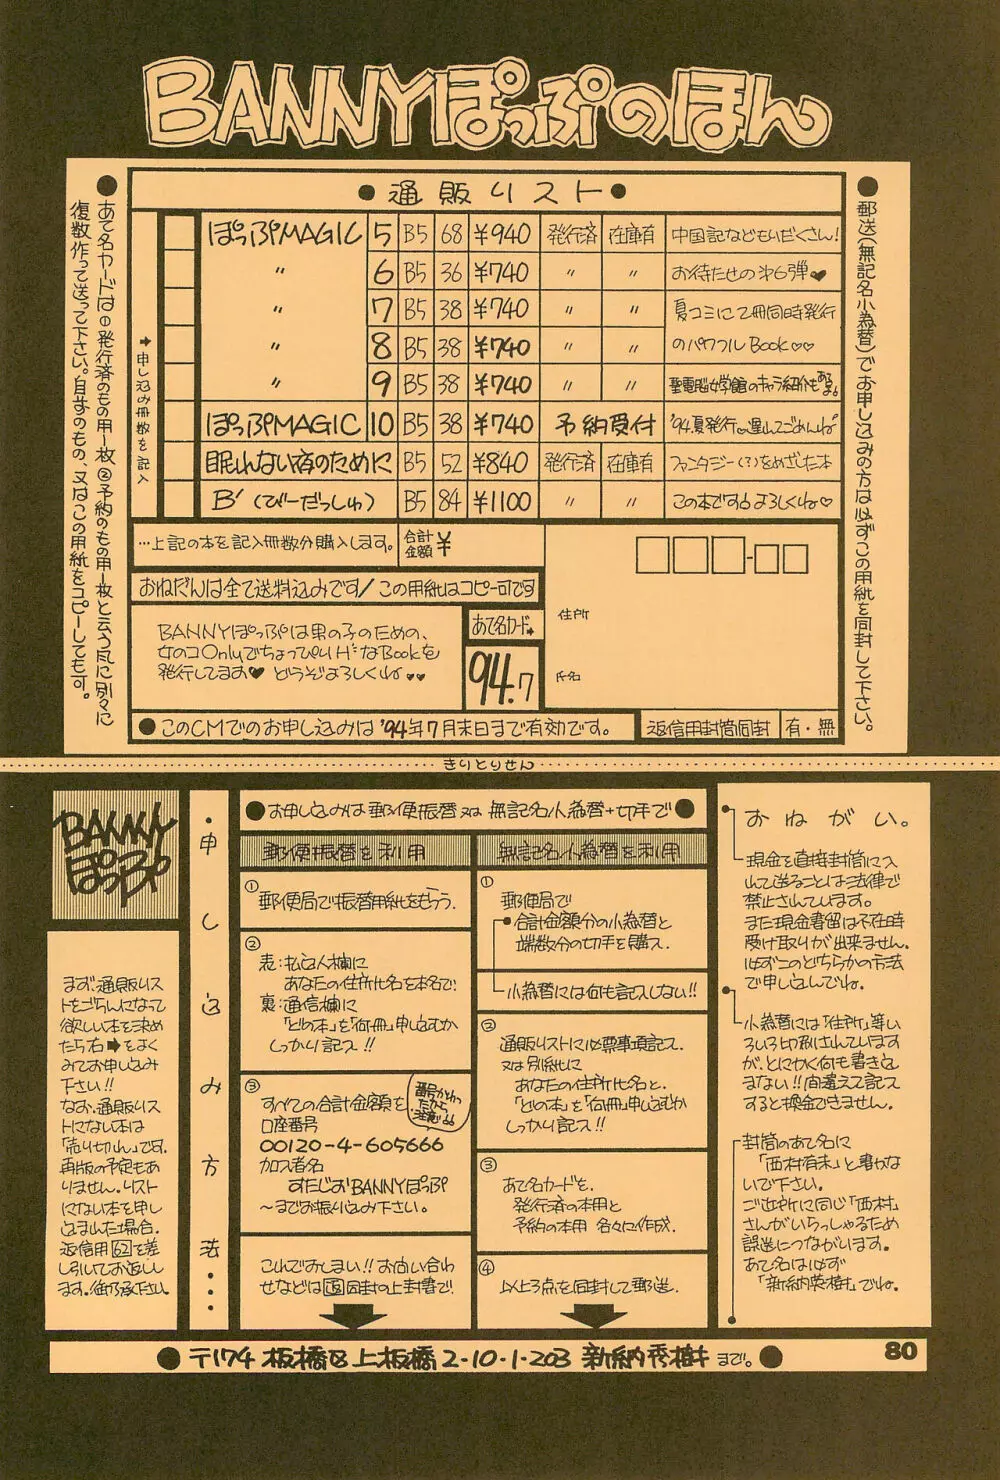 BANNYぽっぷのほん
●通販リスト●
●郵送(無記名小為替)でお申し込みの方は必ずこの用紙を同封して下さい。
●あて名カードは①発行済のもの用1枚②予約のもの用1枚と云う風に別々に
復数作って送って下さい。自作のもの、又はこの用紙をコピーしても可。
➡申し込み冊数を記入
ぽっぷMAGIC 5 B5 68 ¥940 発行済 在庫有 中国記などもりだくさん!
〃 6 B5 36 ¥740 〃 〃 お待たせの第6弾♥
〃 7 B5 38 ¥740 〃 〃 夏コミにて2冊同時発行
〃 8 B5 38 ¥740 〃 〃 のパワフルBook♡♡
〃 9 B5 38 ¥740 〃 〃 聖電脳女学館のキャラ紹介もあるよ。
ぽっぷMAGIC 10 B5 38 ¥740 予約受付 '94.夏発行 遅れてごめんね
眠れない夜のために B5 52 ¥840 発行済 在庫有 ファンタジー(?)をめざした本
B′(びーだっしゅ) B5 84 ¥1100 〃 〃 この本です。よろしくね♡
…上記の本を記入冊数分購入します。
合計金額 ¥
おねだんは全て送料込みです!この用紙はコピー可です
BANNYぽっぷは男の子のための、
女のコOnlyでちょっぴりHなBookを
発行してます♥ どうぞよろしくね♥♥
あて名カード→
94.7
住所
氏名
●このCMでのお申し込みは'94年7月末日まで有効です。
返信用封筒同封 有・無
きりとりせん
BANNYぽっぷ
まず、通販リス
トをごらんになって
欲しい本を決め
たら右➡をよく
みてお申し込み
下さい!!
なお、通販リス
トにない本は
「売り切れ」です。
再版の予定もあ
りません。リスト
にない本を申し
込まれた場合、
返信用62を差
し引いてお返しし
ます。御了承下さい。
・申し込み方法・・・
●お申し込みは郵便振替又は無記名小為替+切手で●
郵便振替を利用
① 郵便局で振替用紙をもらう。
② 表:払込人欄に
あなたの住所氏名を本名で:
裏:通信欄に
「どの本」を「何冊」申し込むか
しっかり記入!!
③ すべての合計金額を
番号かわったから注意!
口座番号
00120-4-605666
加入者名
すたじおBANNYぽっぷ
〜までお振り込み下さい。
これでおしまい!!お問い合わ
せなどは同封の上封書で。
無記名小為替を利用
① 郵便局で
●合計金額分の小為替と
端数分の切手を購入。
小為替には何も記入しない!!
② 通販リストに必要事項記入。
又は別紙に
あなたの住所氏名と、
「どの本」を「何冊」申し込むか
しっかり記入!!
③ あて名カードを、
発行済の本用と
予約の本用 各々に作成。
④ 以上3点を同封して郵送。
おねがい。
現金を直接封筒に入
れて送ることは法律で
禁止されています。
また現金書留は不在時
受け取りが出来ません。
必ずこのどちらかの方法
で申し込んでね。
小為替には「住所」等い
ろいろ印刷されています
が、とにかく何も書き込
まない!!間違えて記入
すると換金できません。
封筒のあて名に
「西村有未」と書かな
いで下さい。
ご近所に同じ「西村」
さんがいらっしゃるため
誤送につながります。
あて名は必ず
「新納秀樹」でね。
●〒174 板橋区上板橋2-10-1-203 新納秀樹まで。●
80